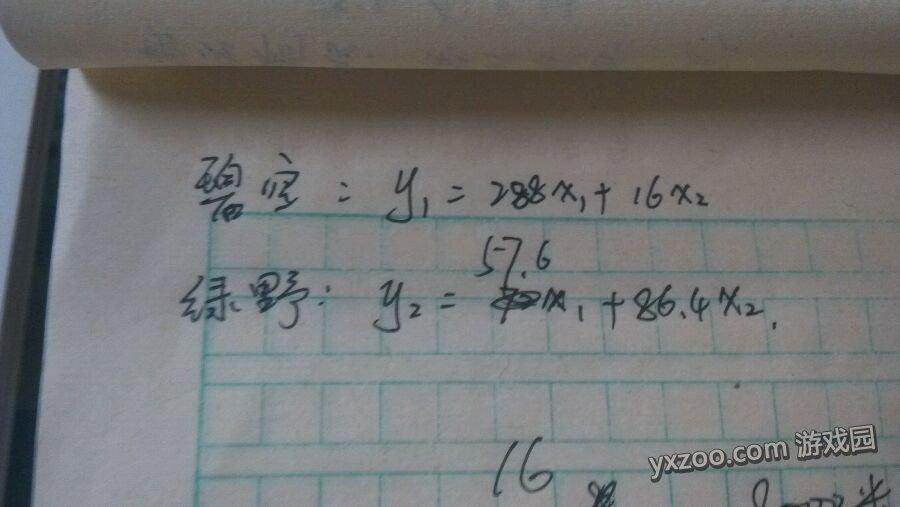 碧空：y₁ = 288x₁ + 16x₂
57.6
绿野：y₂ = x₁ + 86.4x₂.
16
yxzoo.com 游戏园
米